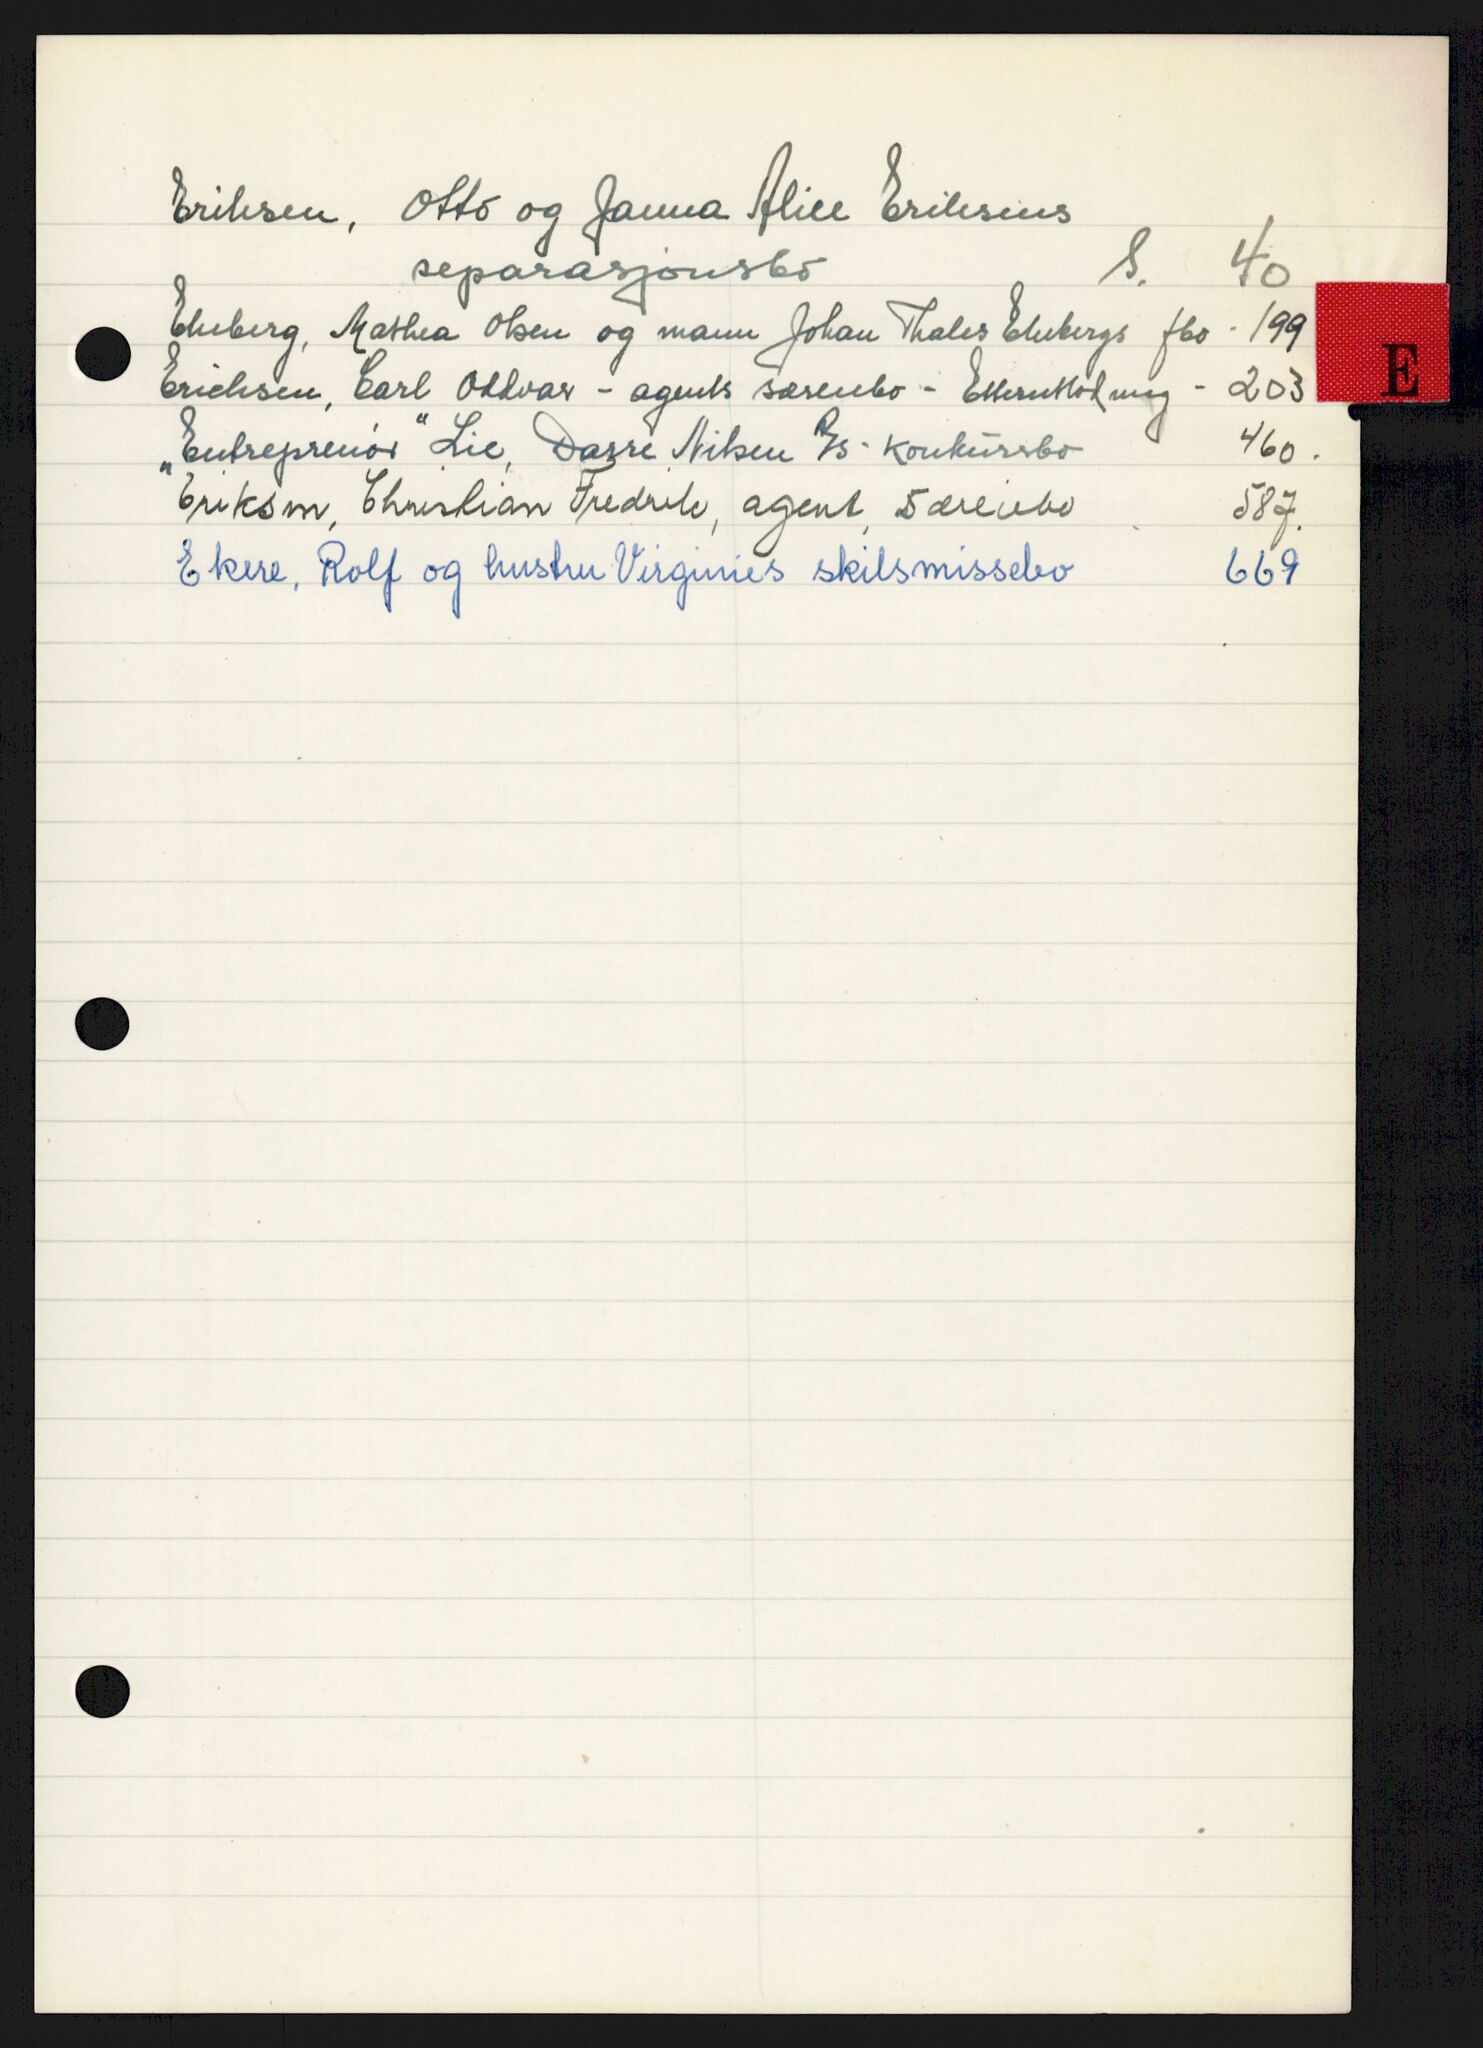 Eriksen, Otto og Janna Alice Eriksens
separasjonsbo S. 40
Ekeberg, Mathea Olsen og mann Johan Thales Ekebergs fbo - 199
E
Erichsen, Carl Oddvar - agents særeiebo - Etterutlodning - 203
"Entreprenør" Lie, Darre Nilsen A/S - konkursbo 460.
Eriksen, Christian Fredrik, agent, særeiebo 587.
Ekere, Rolf og hustru Virginies skilsmissebo 669